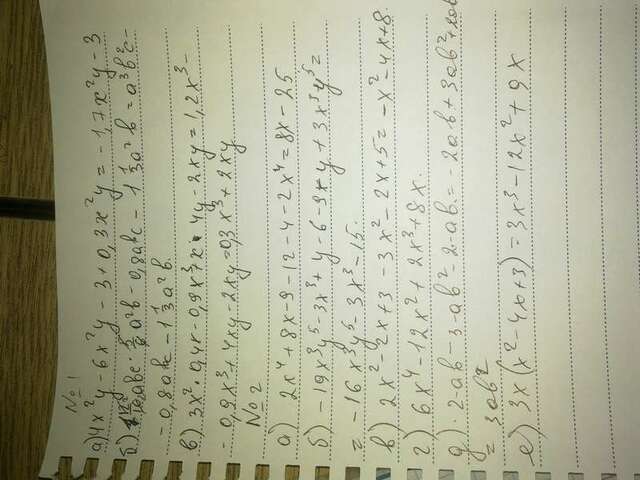 № 1
а) 4x²y - 6x²y - 3 + 0,3x²y = -1,7x²y - 3
б) abc · a²b - 0,8abc - 1 1/3 a²b = a³b²c -
- 0,8abc - 1 1/3 a²b.
в) 3x² · 0,4x - 0,9x³ + x · 4y - 2xy = 1,2x³ -
- 0,9x³ + 4xy - 2xy = 0,3x³ + 2xy
№ 2
а) 2x⁴ + 8x - 9 - 12 - 4 - 2x⁴ = 8x - 25
б) -19x³y⁵ - 3x³ + y - 6 - 9 - y + 3x³y⁵ =
= -16x³y⁵ - 3x³ - 15.
в) 2x² - 2x + 3 - 3x² - 2x + 5 = -x² - 4x + 8.
г) 6x⁴ - 12x² + 2x³ + 8x.
д) 2-ab - 3-ab² - 2-ab = -2ab + 3ab² +
= 3ab²
е) 3x (x² - 4x + 3) = 3x³ - 12x² + 9x